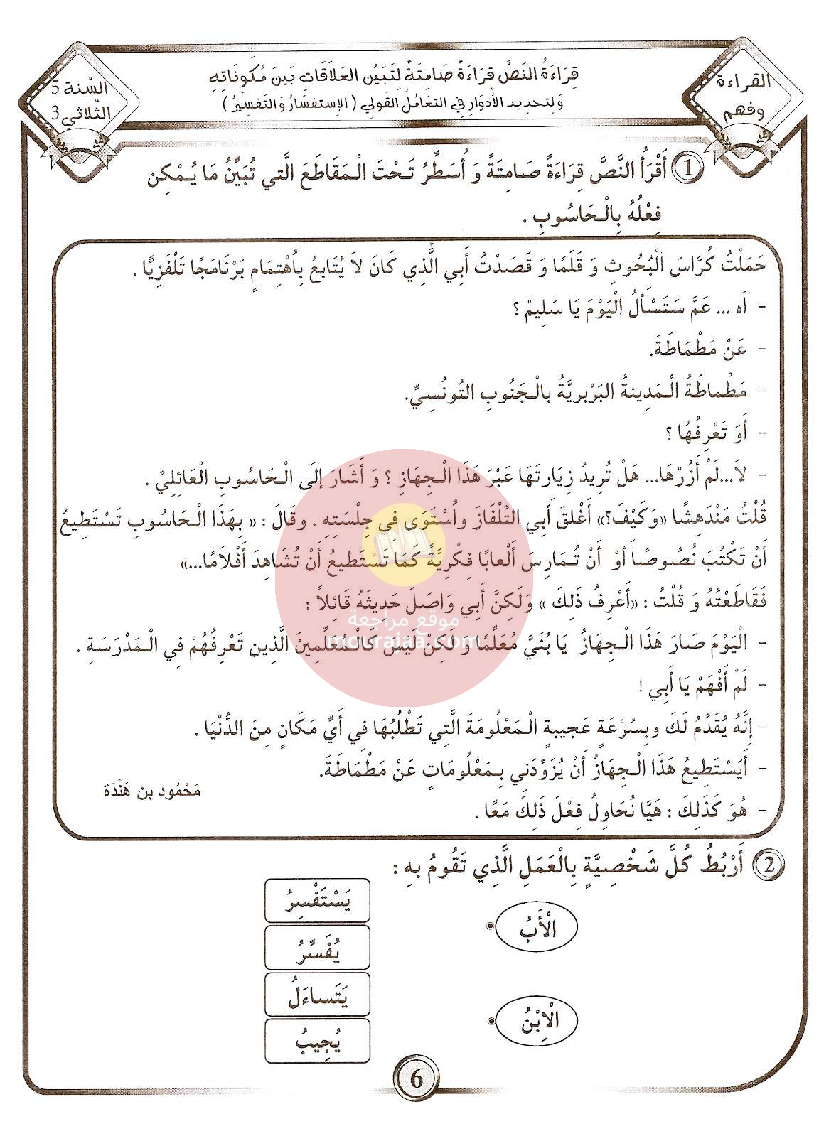 القراءة
وفهم
قِرَاءَةُ النَّصِّ قِرَاءَةً صَامِتَةً لِتَبَيُّنِ العَلَاقَاتِ بَيْنَ مُكَوِّنَاتِهِ
وَلِتَحْدِيدِ الأَدْوَارِ فِي التَّعَامُلِ القَوْلِي ( الاِسْتِفْسَارُ وَالتَّفْسِيرُ )
السّنة 5
الثّلاثي 3
1 أَقْرَأُ النَّصَّ قِرَاءَةً صَامِتَةً وَ أُسَطِّرُ تَحْتَ الْمَقَاطَعِ الَّتِي تُبَيِّنُ مَا يُمْكِنِ
فِعْلُهُ بِالْحَاسُوبِ .
حَمَلْتُ كُرَّاسَ الْبُحُوثِ وَ قَلَمًا وَ قَصَدْتُ أَبِي الَّذِي كَانَ لاَ يُتَابِعُ بِاُهْتِمَامٍ بَرْنَامَجًا تَلْفَزِيًّا .
- آه ... عَمَّ سَتَسْأَلُ الْيَوْمَ يَا سَلِيمُ ؟
- عَنْ مَطْمَاطَةَ.
- مَطْمَاطَةُ الْمَدِينَةُ الْبَرْبَرِيَّةُ بِالْجَنُوبِ التُونُسِيِّ.
- أَوَ تَعْرِفُهَا ؟
- لاَ...لَمْ أَزُرْهَا... هَلْ تُرِيدُ زِيَارَتَهَا عَبْرَ هَذَا الْجِهَازِ ؟ وَ أَشَارَ إِلَى الْحَاسُوبِ الْعَائِلِيِّ .
قُلْتُ مُنْدَهِشًا «وَكَيْفَ؟» أَغْلَقَ أَبِي التِّلْفَازَ واُسْتَوَى فِي جِلْسَتِهِ . وقَالَ : « بِهَذَا الْحَاسُوبِ تَسْتَطِيعُ
أَنْ تَكْتُبَ نُصُوصًا أَوْ أَنْ تُمَارِسَ أَلْعَابًا فِكْرِيَّةً كَمَا تَسْتَطِيعُ أَنْ تُشَاهِدَ أَفْلاَمًا...»
فَقَاطَعْتُهُ وَ قُلْتُ : «أَعْرِفُ ذَلِكَ » وَلَكِنَّ أَبِي وَاصَلَ حَدِيثَهُ قَائِلاً :
- الْيَوْمَ صَارَ هَذَا الْجِهَازُ يَا بُنَيَّ مُعَلِّمًا وَ لَكِنْ لَيْسَ كَالْمُعَلِّمِينَ الَّذِينِ تَعْرِفُهُمْ فِي الْمَدْرَسَةِ .
- لَمْ أَفْهَمْ يَا أَبِي !
- إِنَّهُ يُقَدِّمُ لَكَ وبِسُرْعَةٍ عَجِيبَةٍ الْمَعْلُومَةَ الَّتِي تَطْلُبُهَا فِي أَيِّ مَكَانٍ مِنَ الدُّنْيَا .
- أَيَسْتَطِيعُ هَذَا الْجِهَازُ أَنْ يُزَوِّدَنِي بِمَعْلُومَاتٍ عَنْ مَطْمَاطَةَ.
- هُوَ كَذَلِكَ : هَيَّا نُحَاوِلُ فِعْلَ ذَلِكَ مَعًا .
مَحْمُود بن هَنْدَة
موقع مراجعة
mourajaa.com
2 أَرْبُطُ كُلَّ شَخْصِيَّةٍ بِالْعَمَلِ الَّذِي تَقُومُ بِهِ :
الْأَبُ
الْاِبْنُ
يَسْتَفْسِرُ
يُفَسِّرُ
يَتَساءَلُ
يُجِيبُ
6